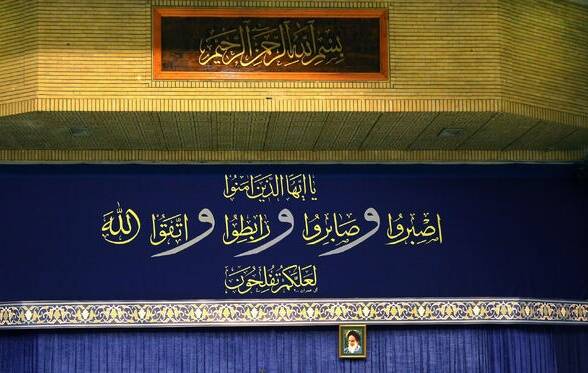 بسم الله الرحمن الرحيم
يا ايها الذين امنوا
اصبروا و صابروا و رابطوا و اتقوا الله
لعلكم تفلحون